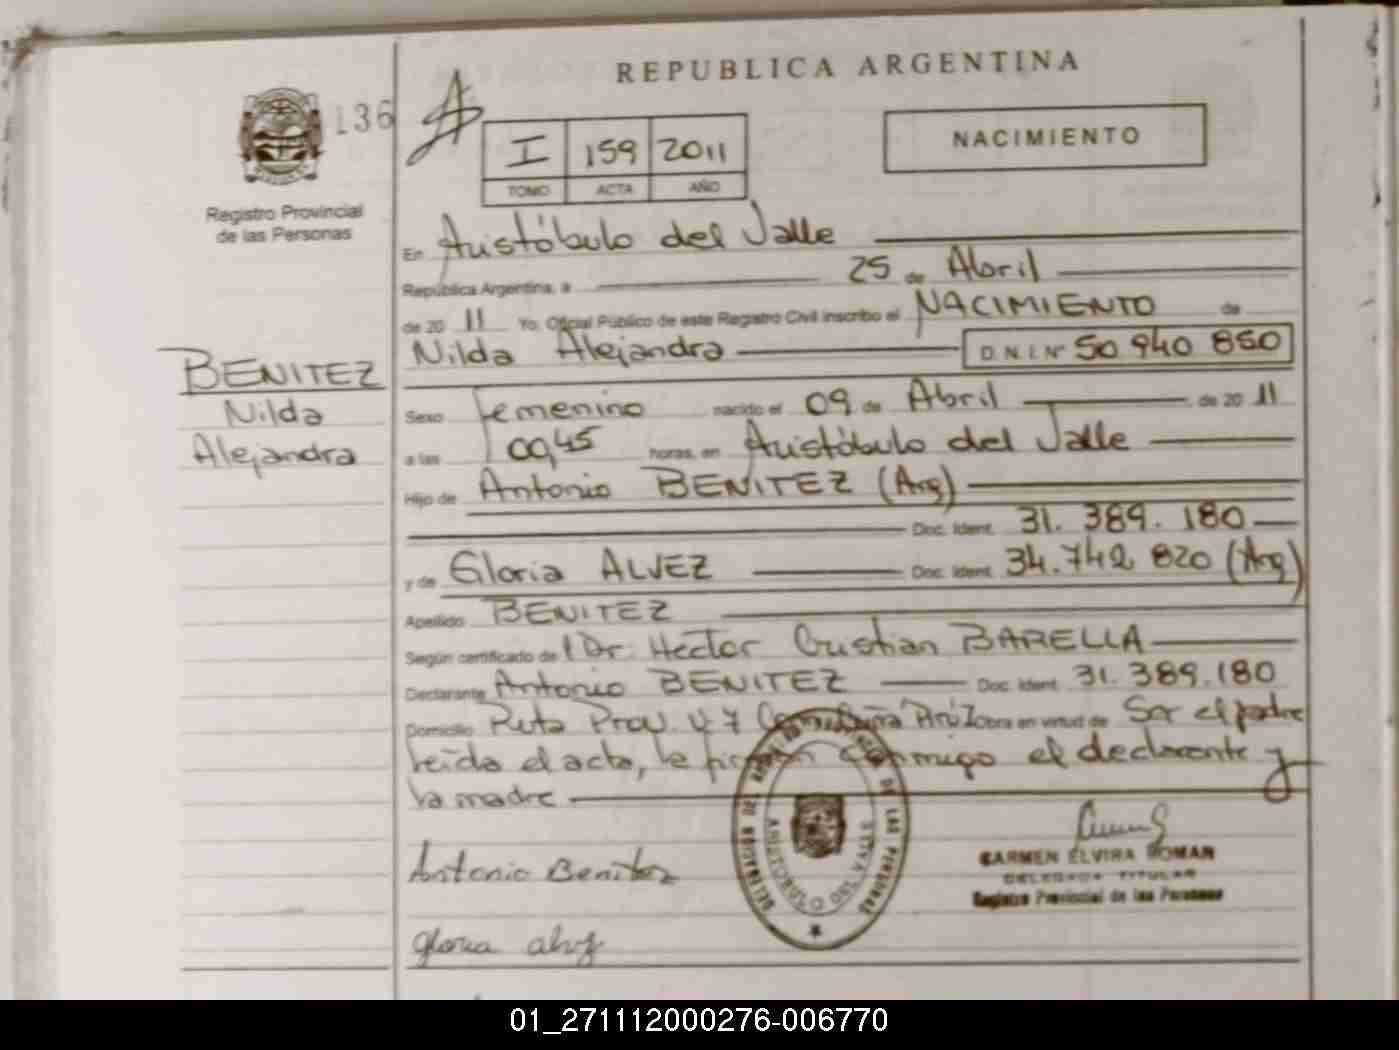 REPUBLICA ARGENTINA
136
I 159 2011
TOMO ACTA AÑO
NACIMIENTO
Registro Provincial
de las Personas
En Aristóbulo del Valle
República Argentina, a 25 de Abril
de 20 11 Yo, Oficial Público de este Registro Civil inscribo el NACIMIENTO de
Nilda Alejandra D.N.I. Nº 50 940 850
BENITEZ
Nilda
Alejandra
Sexo femenino nacido el 09 de Abril de 20 11
a las 00,45 horas, en Aristóbulo del Valle
Hijo de Antonio BENITEZ (Arg)
Doc. Ident. 31. 389. 180
y de Gloria ALVEZ Doc. Ident. 34.742 820 (Arg)
Apellido BENITEZ
Según certificado del Dr. Hector Cristian BARELLA
Declarante Antonio BENITEZ Doc. Ident. 31.389.180
Domicilio Ruta Prov. Nº 7 Obra en virtud de Ser el padre
Leída el acta, la firman conmigo el declarante y
la madre
Antonio Benitez
gloria alvz
DELEGACION DEL REGISTRO PROVINCIAL DE LAS PERSONAS
ARISTOBULO DEL VALLE
CARMEN ELVIRA ROMAN
DELEGADA TITULAR
Registro Provincial de las Personas
01_271112000276-006770